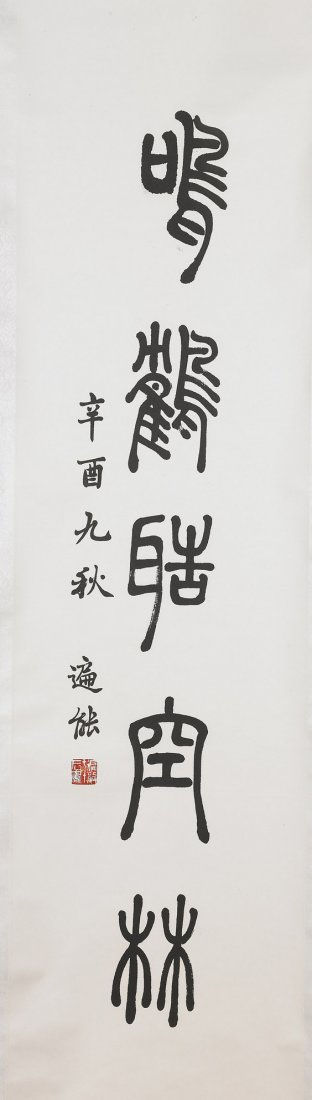 鳴鶴聒空林
辛酉九秋 遍能